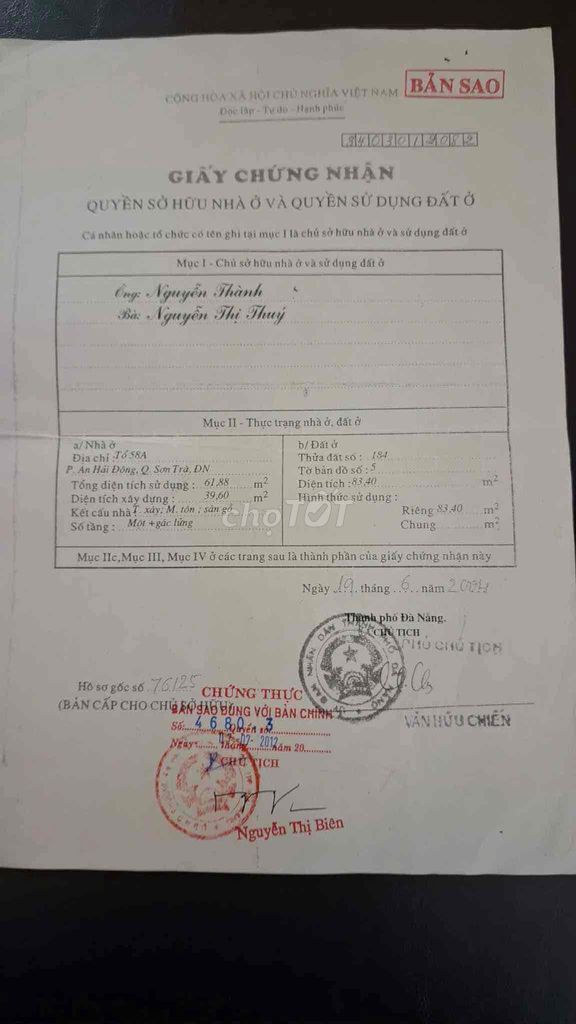 BẢN SAO
CỘNG HÒA XÃ HỘI CHỦ NGHĨA VIỆT NAM
Độc lập - Tự do - Hạnh phúc
3403012082
GIẤY CHỨNG NHẬN
QUYỀN SỞ HỮU NHÀ Ở VÀ QUYỀN SỬ DỤNG ĐẤT Ở
Cá nhân hoặc tổ chức có tên ghi tại mục I là chủ sở hữu nhà ở và sử dụng đất ở
Mục I - Chủ sở hữu nhà ở và sử dụng đất ở
Ông: Nguyễn Thành
Bà: Nguyễn Thị Thuý
Mục II - Thực trạng nhà ở, đất ở
a/ Nhà ở
Địa chỉ : Tổ 58A
P. An Hải Đông, Q. Sơn Trà, ĐN
Tổng diện tích sử dụng : 61,88 m2
Diện tích xây dựng : 39,60 m2
Kết cấu nhà T. xây; M. tôn ; sàn gỗ
Số tầng : Một + gác lửng
b/ Đất ở
Thửa đất số : 184
Tờ bản đồ số : 5
Diện tích : 83,40 m2
Hình thức sử dụng :
Riêng 83,40 m2
Chung m2
chợTỐT
Mục IIc, Mục III, Mục IV ở các trang sau là thành phần của giấy chứng nhận này
Ngày 19 tháng 6 năm 2004
Thành phố Đà Nẵng.
CHỦ TỊCH
PHÓ CHỦ TỊCH
VĂN HỮU CHIẾN
Hồ sơ gốc số 76125
(BẢN CẤP CHO CHỦ SỞ HỮU)
CHỨNG THỰC
BẢN SAO ĐÚNG VỚI BẢN CHÍNH
Số: 4680 Quyển số: 3
Ngày 07-02-2012 tháng năm 20
CHỦ TỊCH
Nguyễn Thị Biên